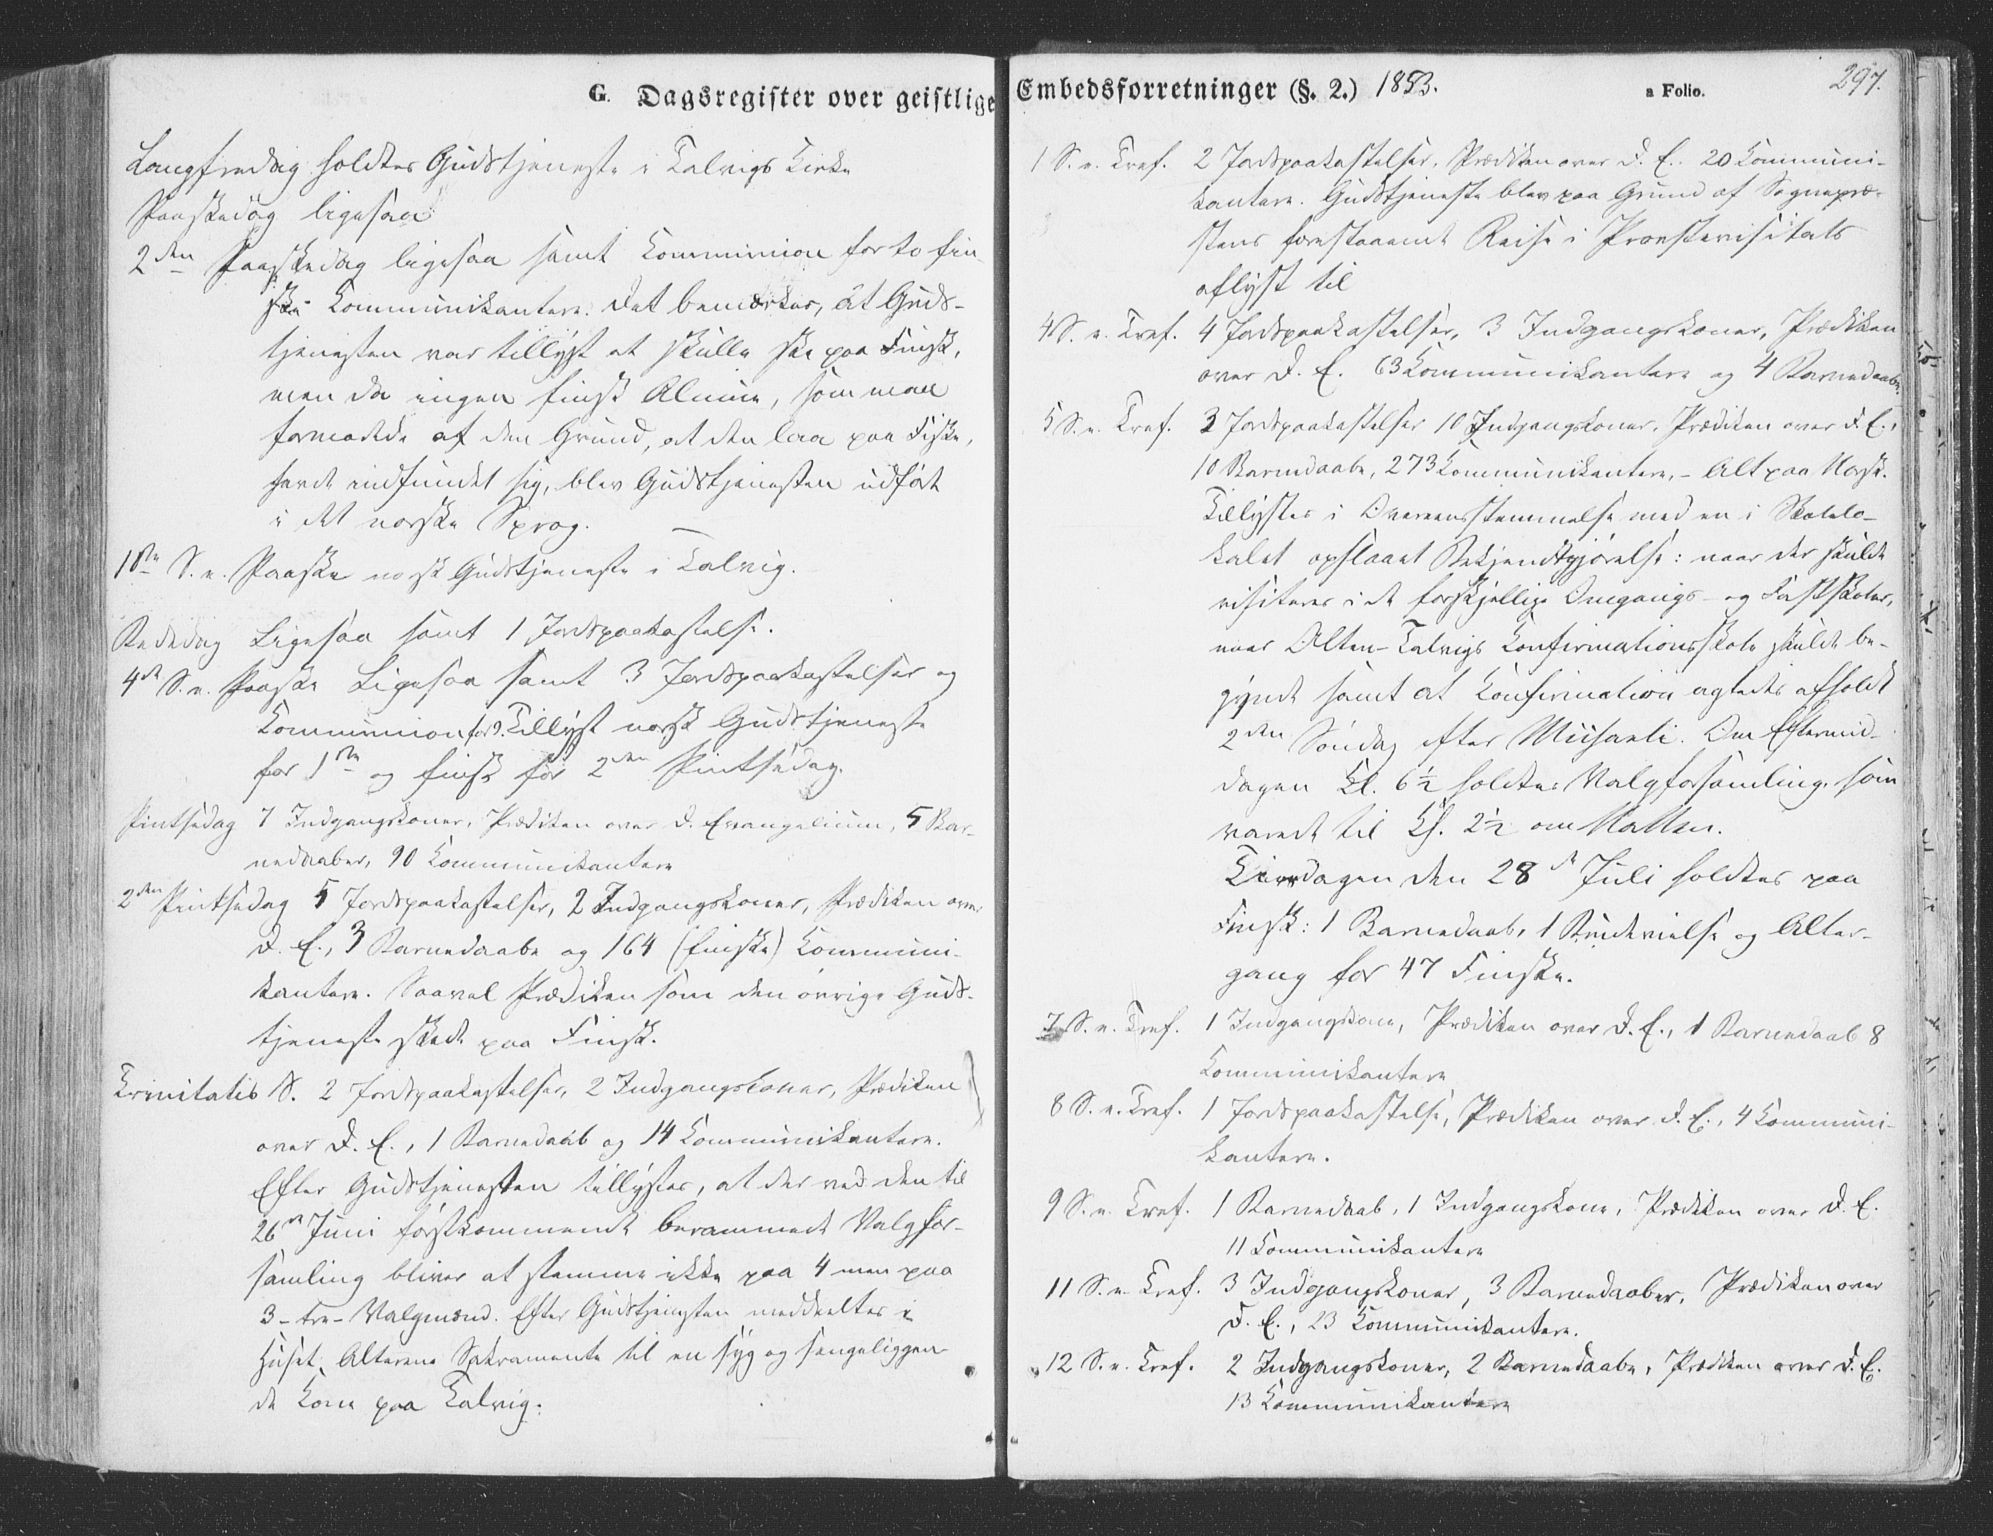 G. Dagsregister over geistlige Embedsforretninger (§. 2.) 1853. a Folio. 297.
Langfredag holdtes Gudstjeneste i Talvigs Kirke
Paaskedag ligesaa
2den Paaskedag ligesaa samt Communion for to fin-
ske Communikantere. Det bemærkes, at Guds-
tjenesten var tillyst at skulle ske paa Finsk,
men da ingen finsk Almue, som man
formodede af den Grund, at den laa paa Fiske,
havde indfundet sig, blev Gudstjenesten udført
i det norske Sprog.
1ste S. e. Paaske norsk Gudstjeneste i Talvig.
Bededag Ligesaa samt 1 Jordspaakastelse.
4de S. e. Paaske Ligesaa samt 3 Jordspaakastelser og
Communion for 9. Tillyst norsk Gudstjeneste
for 1ste og finsk for 2den Pintsedag.
Pintsedag 7 Indgangskoner, Prædiken over d. Evangelium, 5 Bar-
nedaaber, 90 Communikantere
2den Pintsedag 5 Jordspaakastelser, 2 Indgangskoner, Prædiken over
d. E., 3 Barnedaabe og 164 (finske) Communi-
kantere. Saavel Prædiken som den øvrige Guds-
tjeneste skede paa Finsk.
Trinitatis S. 2 Jordspaakastelser, 2 Indgangskoner, Prædiken
over d. E., 1 Barnedaab og 14 Communikantere.
Efter Gudstjenesten tillystes, at der ved den til
26de Juni førstkommende berammede Valgfor-
samling bliver at stemme ikke paa 4 men paa
3 - tre - Valgmænd. Efter Gudstjenesten meddeeltes i
Huset Alterens Sakramente til en syg og sengeliggen-
de Kone paa Talvig.
1 S. e. Tref. 2 Jordspaakastelser. Prædiken over d. E. 20 Communi-
kantere. Gudstjeneste blev paa Grund af Sognepræ-
stens forestaaende Reise i Provstevisitats
aflyst til
4 S. e. Tref. 4 Jordspaakastelser, 3 Indgangskoner, Prædiken
over d. E. 63 Communikantere og 4 Barnedaabe.
5 S. e. Tref. 3 Jordspaakastelser 10 Indgangskoner, Prædiken over d. E.,
10 Barnedaabe, 273 Communikantere, - Alt paa Norsk.
Tillystes i Overeensstemmelse med en i Skolelo-
kalet opslaaet Bekjendtgjørelse: naar der skulde
visiteres i de forskjellige Omgangs- og Fastskoler,
naar Alten-Talvigs Confirmationsskole skulde be-
gynde samt at Confirmation agtedes afholdt
2den Søndag efter Michaeli. Om Eftermid-
dagen Kl. 6½ holdtes Valgforsamling, som
varede til Kl. 2½ om Natten.
Tirsdagen den 28de Juli holdtes paa
Finsk: 1 Barnedaab, 1 Brudevielse og Alter-
gang for 47 Finske.
7 S. e. Tref. 1 Indgangskone, Prædiken over d. E., 1 Barnedaab 8
Communikantere
8 S. e. Tref. 1 Jordspaakastelse, Prædiken over d. E., 4 Communi-
kantere.
9 S. e. Tref. 1 Barnedaab, 1 Indgangskone, Prædiken over d. E.
11 Communikantere
11 S. e. Tref. 3 Indgangskoner, 3 Barnedaaber, Prædiken over
d. E., 23 Communikantere.
12 S. e. Tref. 2 Indgangskoner, 2 Barnedaabe, Prædiken over d. E.
13 Communikantere